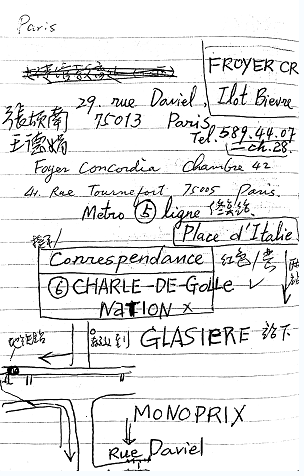 Paris
FROYER CR
Ilot Bievre
29. rue Daviel,
75013 Paris
Tel. 589.44.07
ch.28.
王德娟
Foyer Concordia Chambre 42
41. Rue Tournefort 75005 Paris.
Metro ⑥ ligne
Place d'Italie
Correspondance
⑥ CHARLE-DE-Golle ✓
NATION ×
GLASIERE 站下
地铁站
MONOPRIX
Rue Daviel